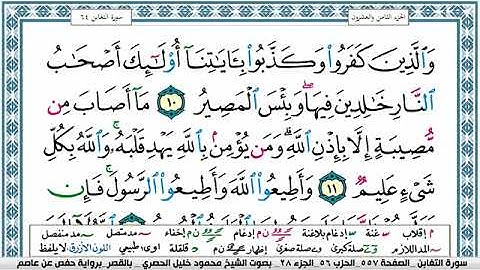 الجزء الثامن والعشرون
سورة التغابن ٦٤
وَالَّذِينَ كَفَرُوا وَكَذَّبُوا بِآيَاتِنَا أُولَٰئِكَ أَصْحَابُ
النَّارِ خَالِدِينَ فِيهَا ۖ وَبِئْسَ الْمَصِيرُ ١٠ مَا أَصَابَ مِن
مُّصِيبَةٍ إِلَّا بِإِذْنِ اللَّهِ ۗ وَمَن يُؤْمِن بِاللَّهِ يَهْدِ قَلْبَهُ ۚ وَاللَّهُ بِكُلِّ
شَيْءٍ عَلِيمٌ ١١ وَأَطِيعُوا اللَّهَ وَأَطِيعُوا الرَّسُولَ ۚ فَإِن
م إقلاب غنة إدغام بلاغنة ن م إدغام ن م إخفاء مد متصل مد منفصل
المد اللازم صلة كبرى صلة صغرى إظهار ن م قلقلة اوى طبيعي اللون الأزرق لا يلفظ
سورة التغابن _ الصفحة ٥٥٧_ الحزب ٥٦ _ الجزء ٢٨_ بصوت الشيخ محمود خليل الحصري _ بالقصر_برواية حفص عن عاصم